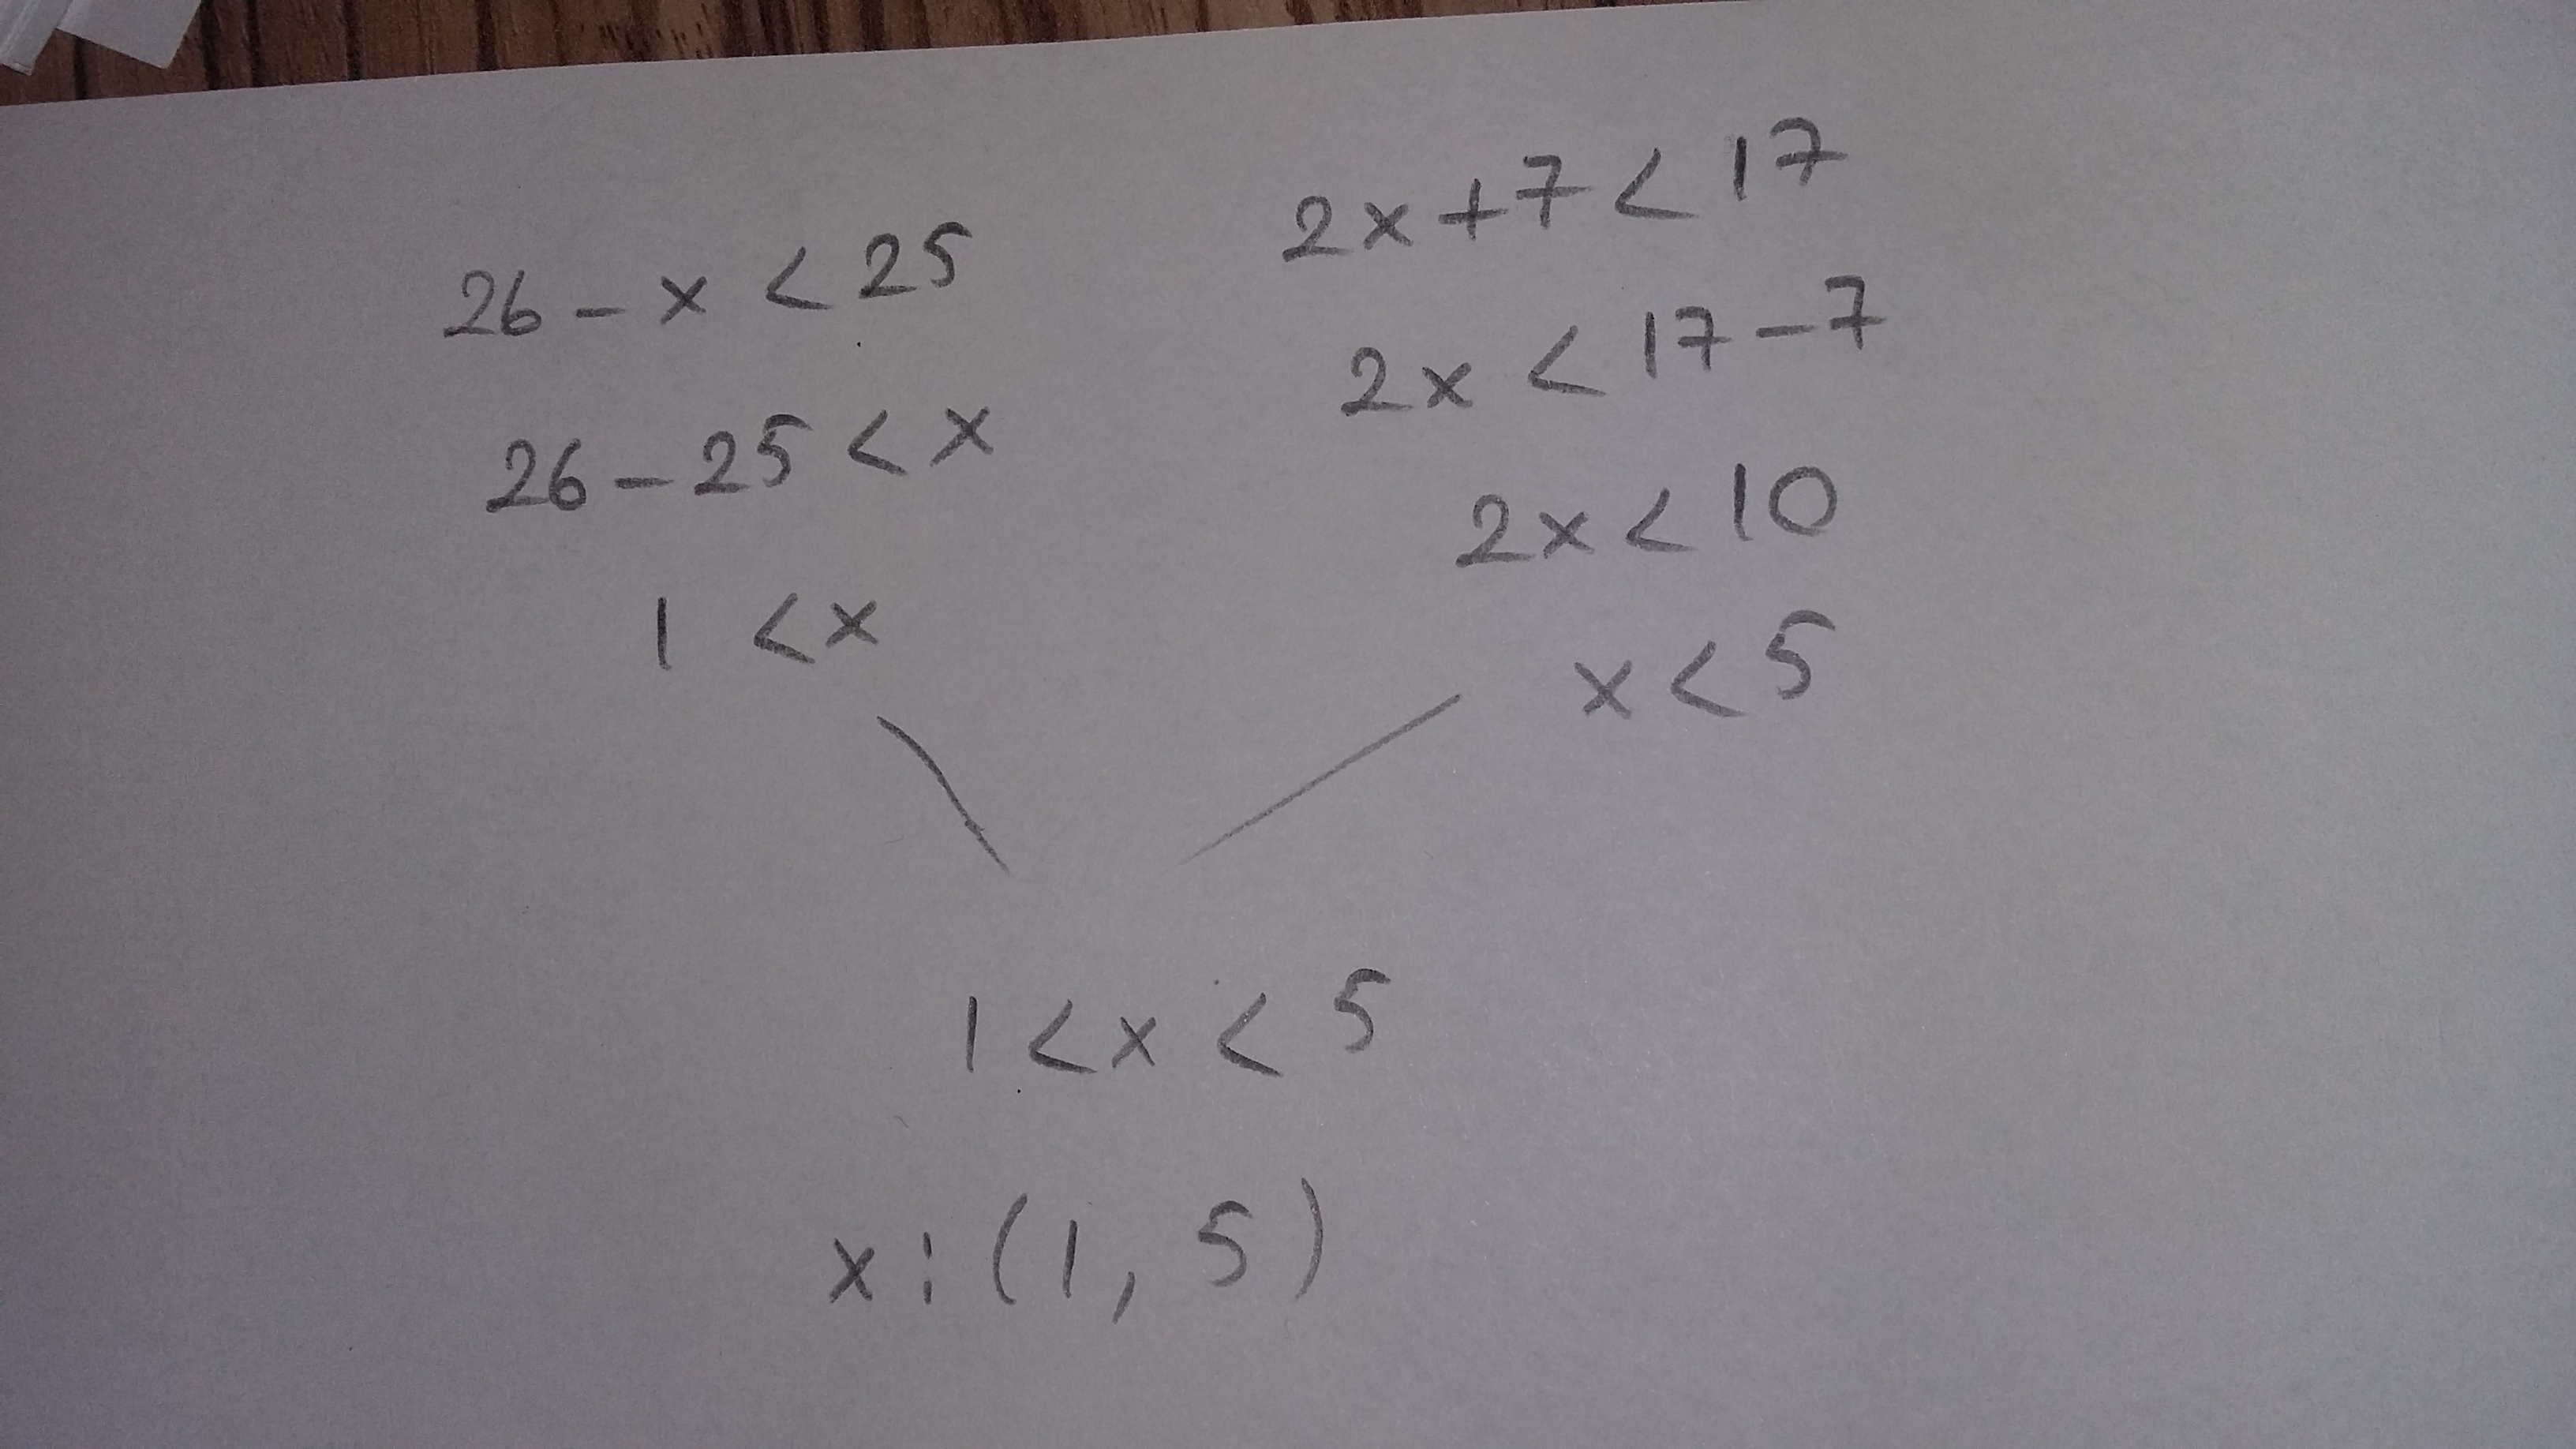 26 - x < 25
26 - 25 < x
1 < x
2x + 7 < 17
2x < 17 - 7
2x < 10
x < 5
1 < x < 5
x : (1, 5)